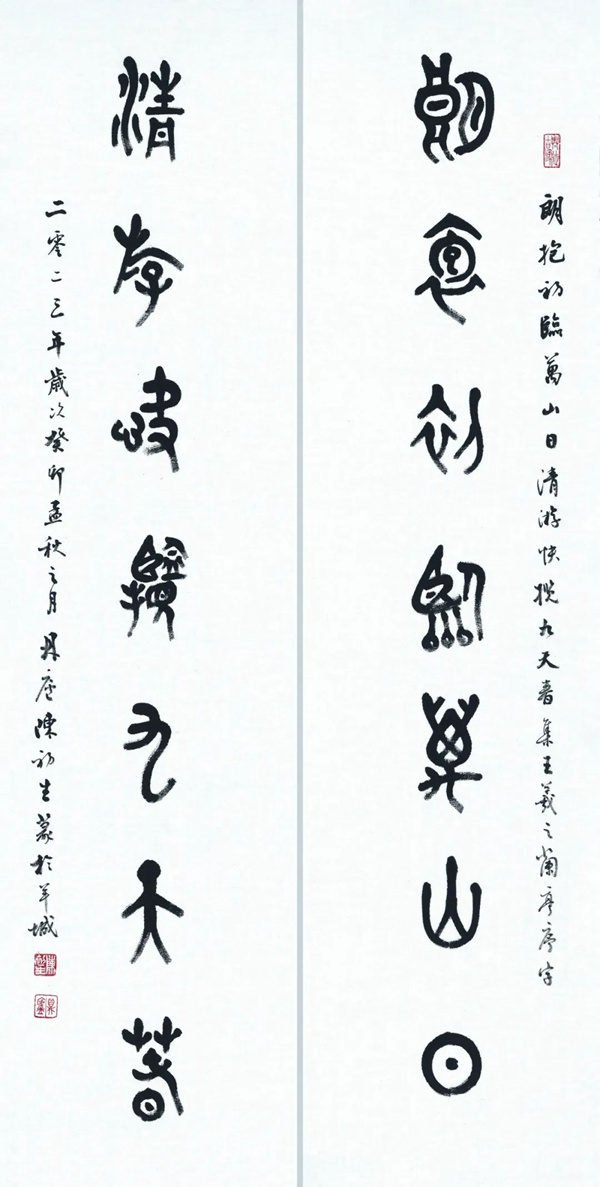 朗抱初臨萬山日清游快攬九天春集王羲之蘭亭序字
朗抱初臨萬山日
清游快攬九天春
二零二三年歲次癸卯孟秋之月陳初生篆於羊城